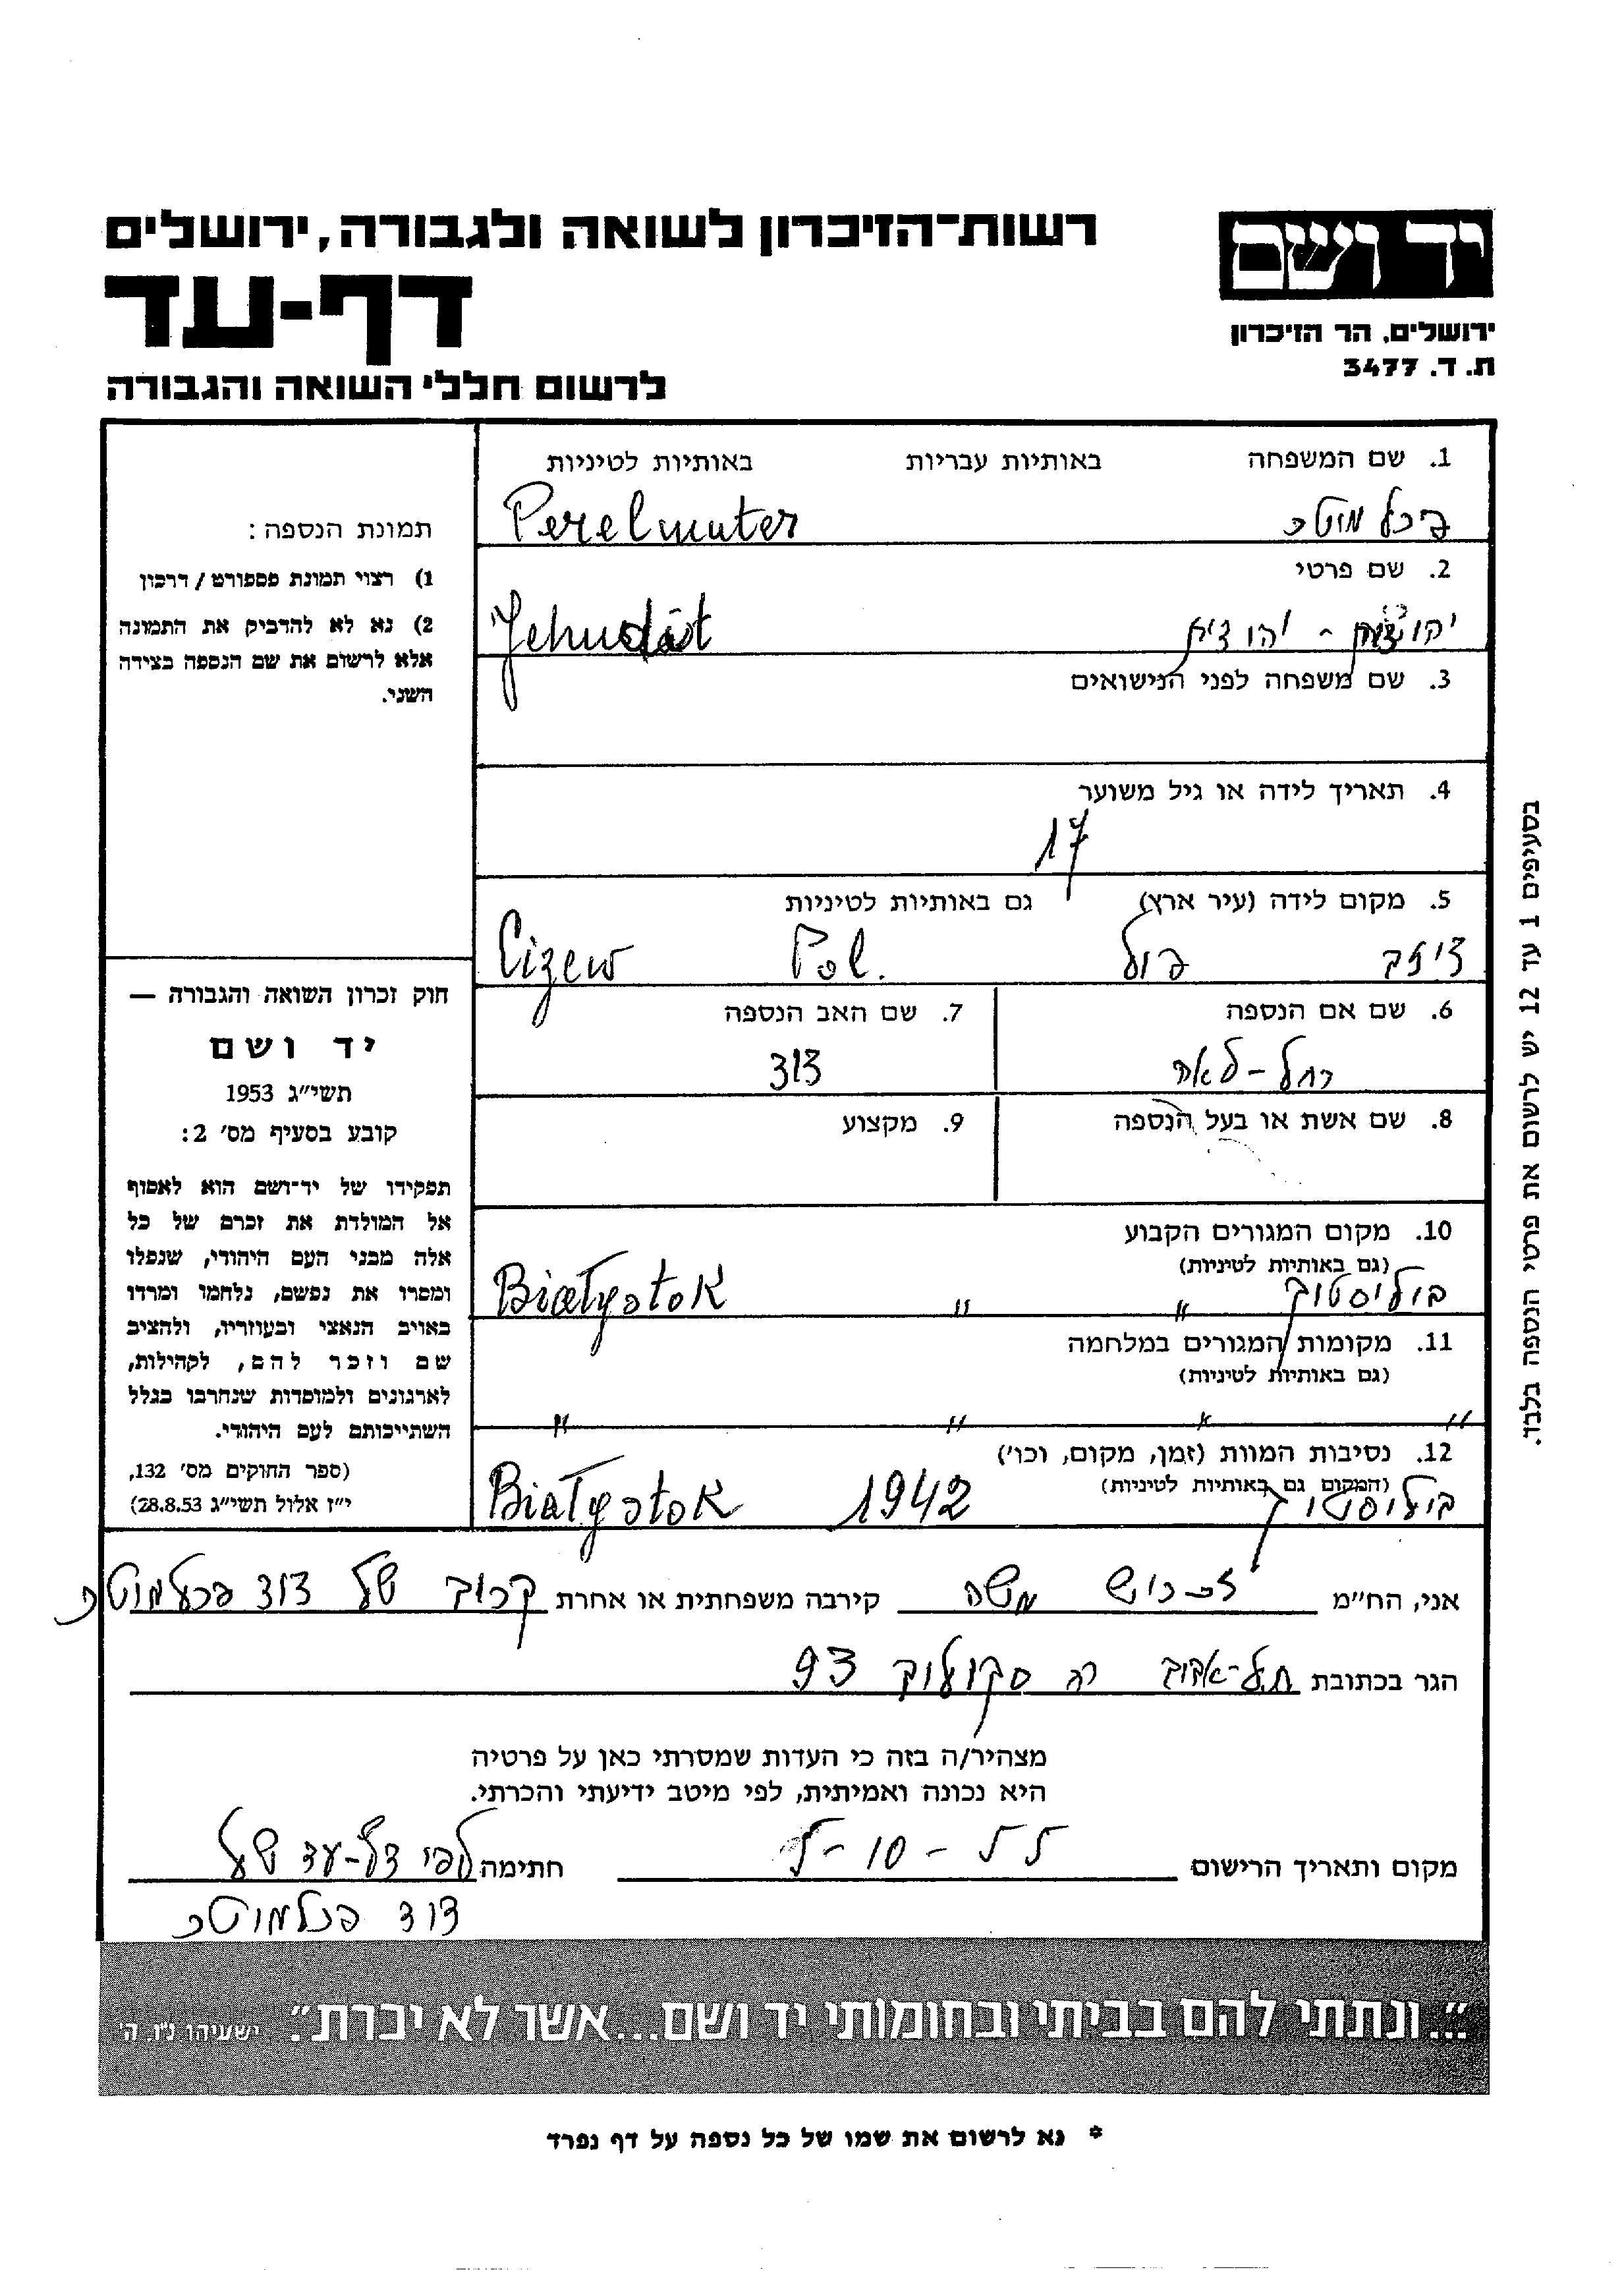 רשות-הזיכרון לשואה ולגבורה, ירושלים
יד ושם
דף-עד
ירושלים, הר הזיכרון
ת. ד. 3477
לרשום חללי השואה והגבורה
1. שם המשפחה באותיות עבריות באותיות לטיניות
Perelmuter
2. שם פרטי
יהודית Jehudit
3. שם משפחה לפני הנישואים
4. תאריך לידה או גיל משוער
17
5. מקום לידה (עיר ארץ) גם באותיות לטיניות
פול Pol. Cizew
6. שם אם הנספה
רחל-לאה
7. שם האב הנספה
דוד
8. שם אשת או בעל הנספה
9. מקצוע
10. מקום המגורים הקבוע
(גם באותיות לטיניות)
ביליסטוק " " Białystok
11. מקומות המגורים במלחמה
(גם באותיות לטיניות)
" " " "
12. נסיבות המוות (זמן, מקום, וכו')
(המקום גם באותיות לטיניות)
ביליסטוק 1942 Białystok
תמונת הנספה:
1) רצוי תמונת פספורט/דרכון
2) נא לא להדביק את התמונה
אלא לרשום את שם הנספה בצידה
השני.
חוק זכרון השואה והגבורה —
יד ושם
תשי"ג 1953
קובע בסעיף מס' 2:
תפקידו של יד-ושם הוא לאסוף
אל המולדת את זכרם של כל
אלה מבני העם היהודי, שנפלו
ומסרו את נפשם, נלחמו ומרדו
באויב הנאצי ובעוזריו, ולהציב
שם וזכר להם, לקהילות,
לארגונים ולמוסדות שנחרבו בגלל
השתייכותם לעם היהודי.
(ספר החוקים מס' 132,
י"ז אלול תשי"ג 28.8.53)
בסעיפים 1 עד 12 יש לרשום את פרטי הנספה בלבד.
אני, הח"מ משה קירבה משפחתית או אחרת קרוב של דוד פרעלמוטר
הגר בכתובת תל-אביב רח סקולוב 93
מצהיר/ה בזה כי העדות שמסרתי כאן על פרטיה
היא נכונה ואמיתית, לפי מיטב ידיעתי והכרתי.
מקום ותאריך הרישום חתימה לפי דף-עד של
דוד פרלמוטר
"...ונתתי להם בביתי ובחומותי יד ושם...אשר לא יכרת". ישעיהו נ"ו, ה'
* נא לרשום את שמו של כל נספה על דף נפרד